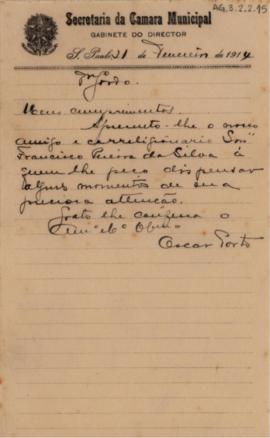 AG.3.2.2.15
Secretaria da Camara Municipal
GABINETE DO DIRECTOR
S. Paulo, 21 de Fevereiro de 1914
Meus cumprimentos.
Apresento-lhe o nosso
amigo e correligionario
Francisco Pereira da Silva á
quem lhe peço dispensar
alguns momentos de sua
preciosa attenção.
Grato lhe
Oscar Porto